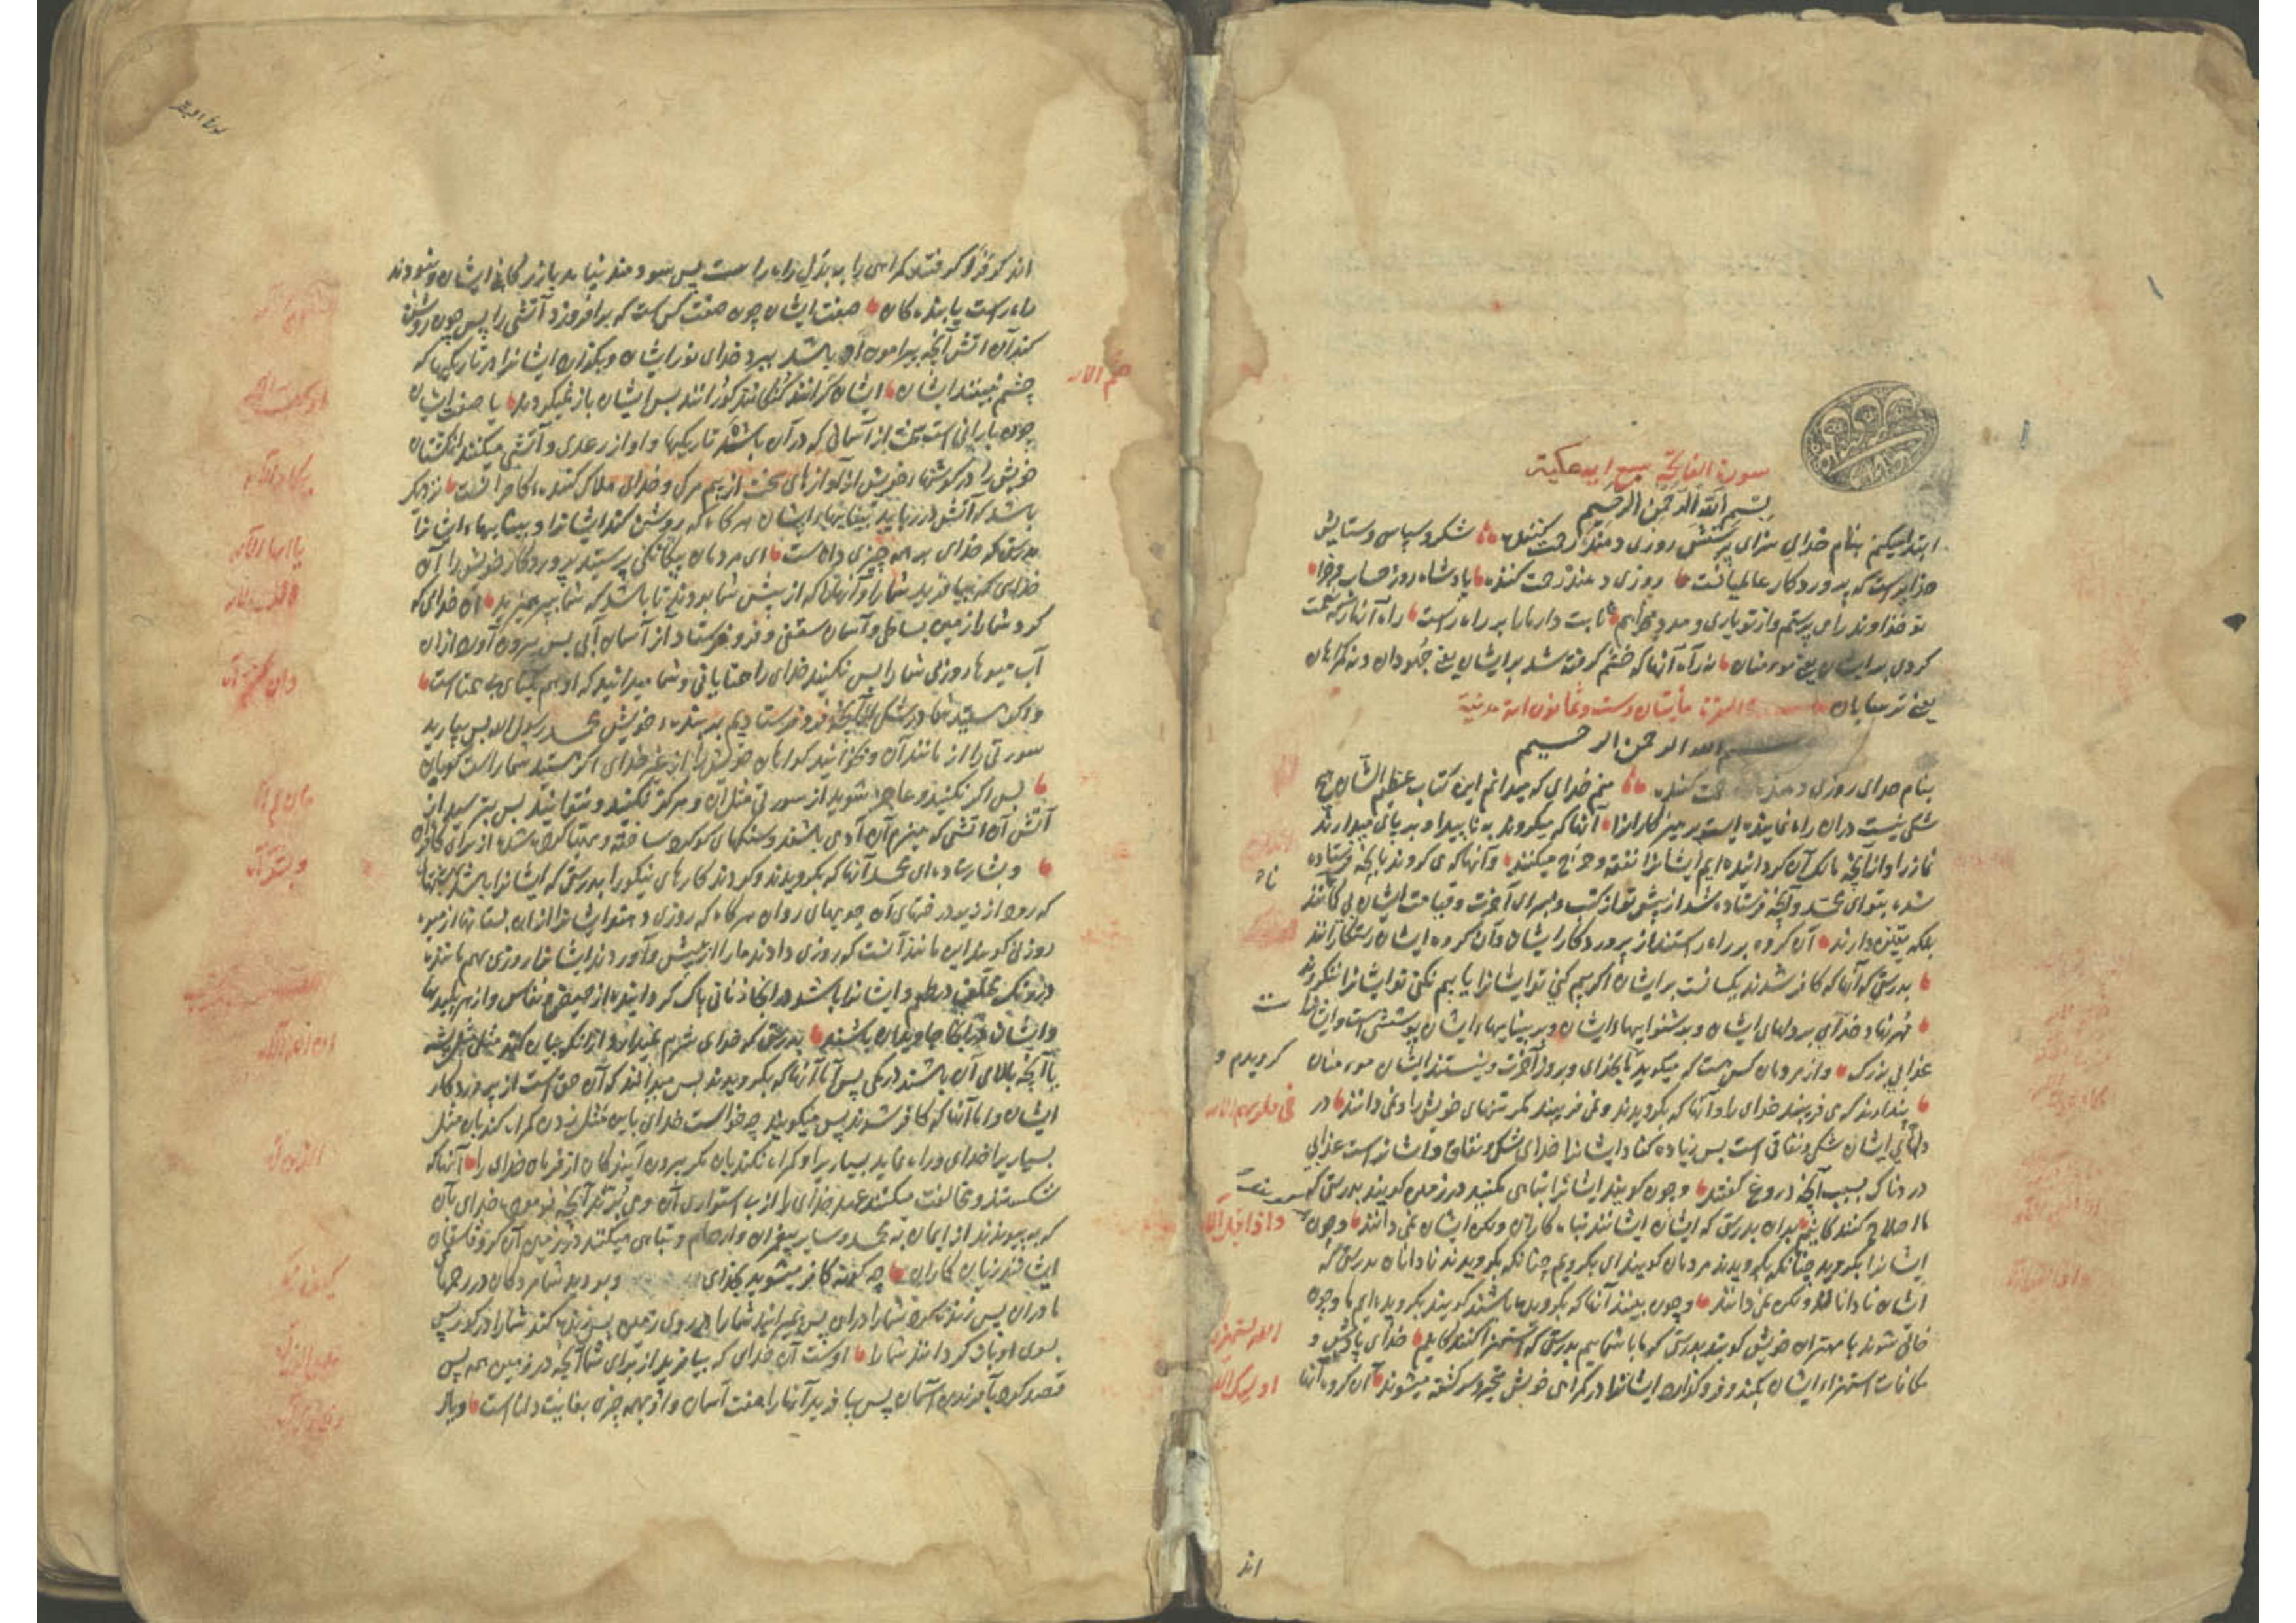 سورة الفاتحة سبع ایه مکیة
بسم الله الرحمن الرحیم
ابتدا میکنم بنام خدای سزای پرستش روزی دهنده رحمت کننده شکر و سپاس و ستایش
خدایراست که پروردکار عالمیانست روزی دهنده رحمت کننده پادشاه روز حساب و جزا
تو خداوند را می پرستم و از تو یاری و مدد میخواهیم ثابت دار ما را بر راه راست راه آنها که نعمت
کردی بر ایشان یعنی مومنان نه راه آنها که خشم کرفته شد بر ایشان یعنی جهودان و نه کمراهان
یعنی ترسایان مأیتان وست وثمانون ایة مدنیة
بسم الله الرحمن الرحیم
بنام خدای روزی دهنده رحمت کننده منم خدای که میدانم این کتاب عظیم الشان هیچ
شکی نیست در آن راه نماینده است پرهیزکارانرا آنها که میکروند به ناپیدا و بر پای میدارند
نماز را و از آنچه مالک آن کردانیده ایم ایشانرا نفقه و خرج میکنند و آنها که می کروند بآنچه فرستاده
شده بتو ای محمد و آنچه فرستاده شد از پیش تو از کتب و بسرای آخرت و قیامت ایشان بی کمانند
بلکه یقین دارند آن کروه بر راه راستند از پروردکار ایشان و آن کروه ایشان رستکارانند
بدرستی که آنها که کافر شدند یکسانست بر ایشان اکر بیم کنی تو ایشانرا یا بیم نکنی تو ایشانرا نکروند
مهر نهاد خدای بر دلهای ایشان و بر شنوایهاء ایشان و بر بیناییهاء ایشان پوششی است و ایشانراست
عذابی بزرک و از مردمان کس است که میکوید بخدای و بروز آخرت و نیستند ایشان مومنان
کرویدم و
پندارند که می فریبند خدای را و آنها که بکرویدند و نمی فریبند مکر تنهای خویش را و نمی دانند در
فی قلوبهم
دلهای ایشان شکی و نفاقی است پس زیاده کناد ایشانرا خدای شک و نفاق و ایشانراست عذابی
دردناک بسبب آنچه دروغ کفتند و چون کویند ایشانرا تباهی مکنید در زمین کویند بدرستی که
ما اصلاح کنندکانیم بدان بدرستی که ایشان ایشانند تباه کاران ولکن ایشان نمی دانند و چون
واذا قیل
ایشانرا بکروید چنانکه بکرویدند مردمان کویند ای بکرویم چنانکه بکرویدند نادانان بدرستی که
ایشان نادانانند ولکن نمی دانند و چون بینند آنها که بکرویده باشند کویند بکرویده ایم ما و چون
خالی شوند با مهتران خویش کویند بدرستی که ما با شماییم بدرستی که استهزا کنندکانیم خدای پاداش و
مکافات استهزاء ایشان بکند و فرو کذارد ایشانرا در کمراهی خویش متحیر و سرکشته میشوند آن کروه آنها
اند
اند که فرا کرفتند کمراهی را به بدل راه راست پس سودمند نیامد بازرکانی ایشان و نبودند
راه راست یابندکان صفت ایشان چون صفت کس است که برافروزد آتشی را پس چون روشن
کند آن آتش آنچه پیرامون او باشد ببرد خدای نور ایشان و بکذارد ایشانرا در تاریکیها که
چشم نبینند ایشان ایشان کرانند کنکانند کورانند پس ایشان باز نمیکردند یا صفت ایشان
چون بارانی است سخت از آسمان که در آن باشد تاریکیها و آواز رعدی و آتشی میکنند انکشتان
خویش را در کوشهاء خویش از آوازهای سخت از بیم مرک و خدای هلاک کننده کافرانست نزدیک
باشد که آتش در رباید بیناییهاء ایشان هرکاه که روشن کند ایشانرا و بیناییهاء ایشانرا
بدرستی که خدای بر همه چیزی داناست ای مردمان بیکانکی پرستید پروردکار خویش را آن
خدای که بیافرید شما را و آنها که از پیش شما بودند تا باشد که شما بپرهیزید آن خدای که
کرد شما را زمین بساطی و آسمان سقفی و فرو فرستاد از آسمان آبی پس بیرون آورد از آن
آب میوها روزی شما را پس نکنید خدای را همتایانی و شما میدانید که او هم یکتای بی همتا است
و اکر هستید شما در شکی از آنچه فرو فرستادیم بر بندهء خویش محمد رسول الله پس بیارید
سورتی را از مانند آن و بخوانید کواهان خویش را از غیر خدای اکر هستید شما راست کویان
پس اکر نکنید و عاجز شوید از سورتی مثل آن و هرکز نکنید و نتوانید پس بترسید از
آتش آن آتشی که هیزم آن آدمی باشند و سنکهای کوکرد ساخته و مهیا کرده شد از برای کافران
و بشارت ده ای محمد آنها که بکرویدند و کردند کارهای نیکو را بدرستی که ایشانرا باشد بهشتها
که رود از زیر درختهای آن جویهای روان هرکاه که روزی دهند ایشانرا از آن بستانها از میوه
روزی کویند این مانند آنست که روزی دادند ما را از پیش و آوردند ایشانرا روزی بهم مانند
در رنک مختلف در طعم و ایشانرا باشد در آنجا زنانی پاک کردانیده از حیض و نفاس و از هر پلیدیها
و ایشان در آنجا جاویدان باشند بدرستی که خدای شرم نمیدارد از آنکه بیان کند مثل پشه
یا آنچه بالای آن باشند در بزرکی پس اما آنها که بکرویدند پس میدانند که آن حق است از پروردکار
ایشان و اما آنها که کافر شدند پس میکویند چه خواست خدای باین مثل زدن کمراه کند بآن مثل
بسیاریرا خدای و راه نماید بسیاریرا و کمراه نکند بآن مکر بیرون آیندکان از فرمان خدای را آنها که
شکستند و مخالفت میکنند عهد خدای را از پس استواری آن و می برند آنچه فرمود خدای بآن
که به پیوندند از ایمان به محمد و سایر پیغمبران و ارحام و تباهی میکنند در زمین آن کروه فاسقان
ایشانند زیان کاران چه کونه کافر میشوید بخدای و بودید شما مردکان در رحمها
مادران پس زنده کرد شما را در آن پس بمیراند شما را در روی زمین پس زنده کند شما را در کور پس
بسوی او باز کردانند شما را اوست آن خدای که بیافرید از برای شما آنچه در زمین همه پس
قصد کرد بآفریدن آسمان پس بیافرید آنها را هفت آسمان و او بهمه چیزی بغایت داناست و یاد